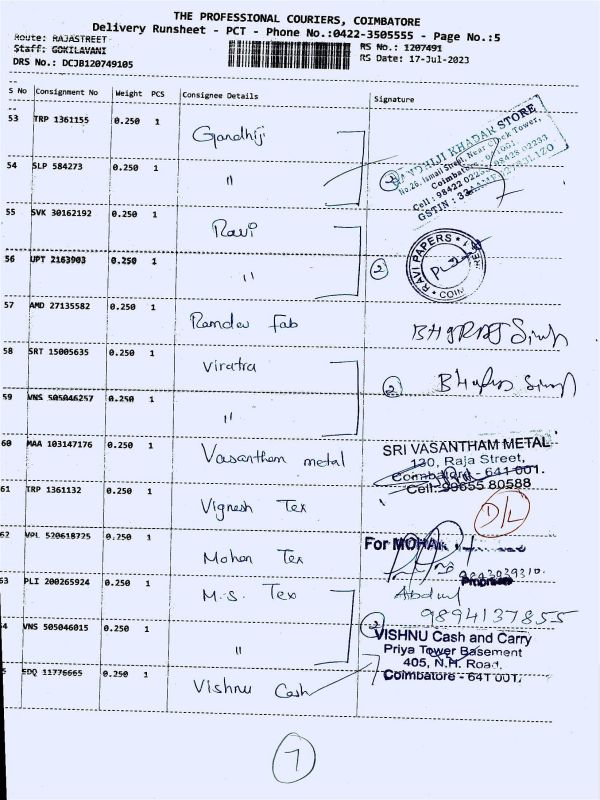 THE PROFESSIONAL COURIERS, COIMBATORE
Delivery Runsheet - PCT - Phone No.:0422-3505555 - Page No.:5
Route: RAJASTREET
Staff: GOKILAVANI
DRS No.: DCJB120749105
RS No.: 1207491
RS Date: 17-Jul-2023
S No Consignment No Weight PCS Consignee Details Signature
53 TRP 1361155 0.250 1 Gandhiji
KHADAR STORE
No.26, Ismail Street, Near Clock Tower,
Coimbatore
Cell : 98422
GSTIN :
54 SLP 584273 0.250 1 "
55 SVK 30162192 0.250 1 Ravi
RAVI PAPERS
COIM
56 UPT 2163903 0.250 1 " 2
57 AMD 27135582 0.250 1 Ramdev Fab
58 SRT 15005635 0.250 1 Viratra
59 VNS 505046257 0.250 1 " 2
60 MAA 103147176 0.250 1 Vasantham metal
SRI VASANTHAM METAL
130, Raja Street,
Coimbatore - 641 001.
Cell: 98655 80588
61 TRP 1361132 0.250 1 Vignesh Tex D/L
62 VPL 520618725 0.250 1 Mohan Tex
For MOHAN
63 PLI 200265924 0.250 1 M.S. Tex Abdul
9894137855
4 VNS 505046015 0.250 1 " 2
VISHNU Cash and Carry
Priya Tower Basement
405, N.H. Road,
Coimbatore - 641 001.
5 EDQ 11776665 0.250 1 Vishnu Cash
7